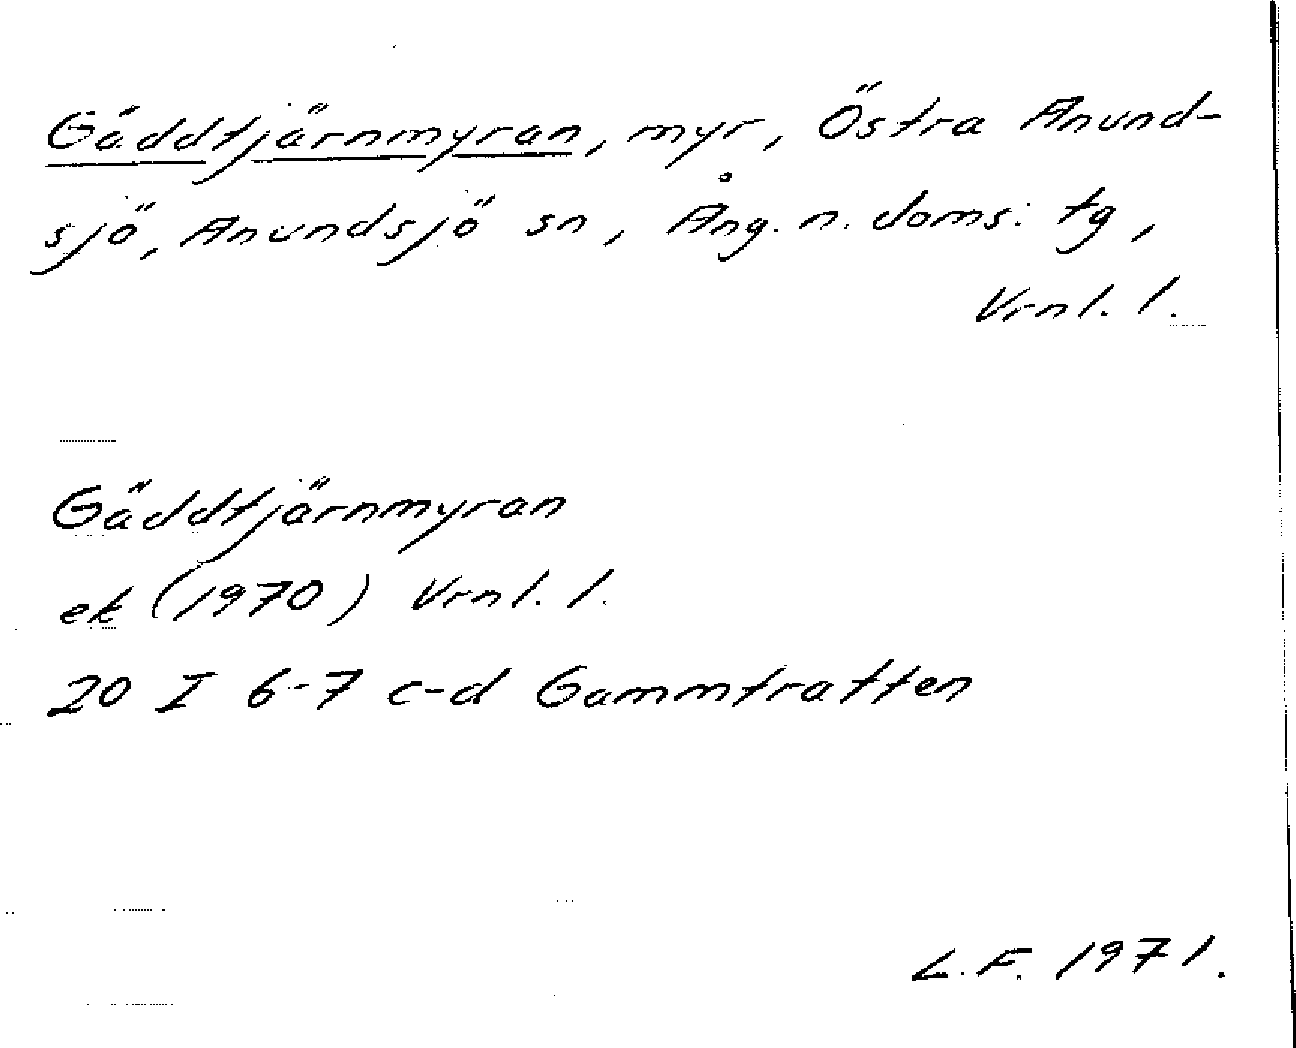 Gäddtjärnmyran, myr, Östra Anund-
sjö, Anundsjö sn, Ång. n. doms. tg,
Vrnl. l.
Gäddtjärnmyran
ek (1970) Vrnl. l.
20 I 6-7 c-d Gammtratten
L.F. 1971.